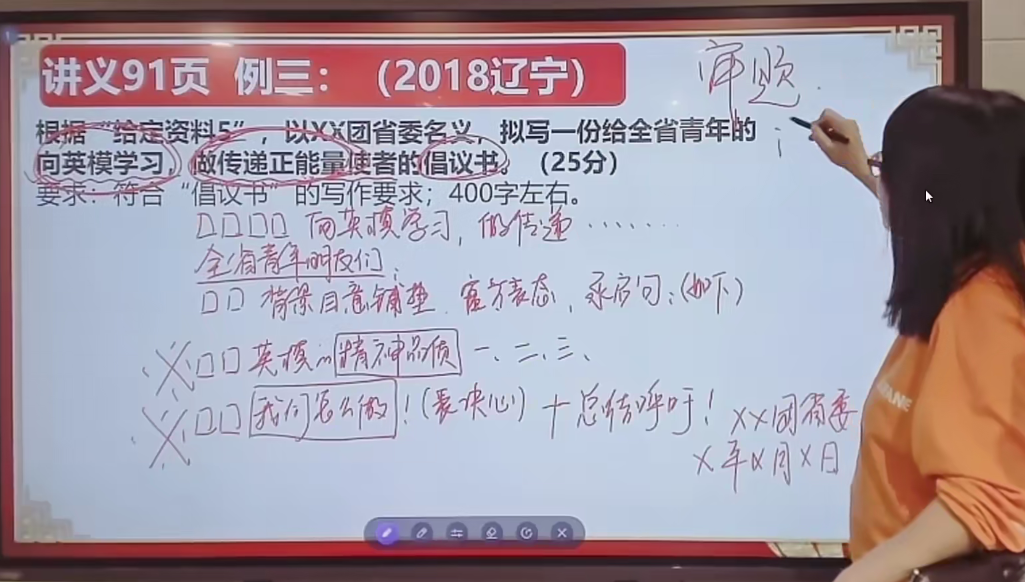 讲义91页 例三：（2018辽宁）
审题
根据“给定资料5”，以XX团省委名义，拟写一份给全省青年的
向英模学习，做传递正能量使者的倡议书。（25分）
要求：符合“倡议书”的写作要求；400字左右。
向英模学习，做传递……
全省青年朋友们：
背景目意铺垫 官方表态，承启句：（如下）
英模的精神品质 一、二、三、
我们怎么做！（表决心）+总结呼吁！
XX团省委
X年X月X日